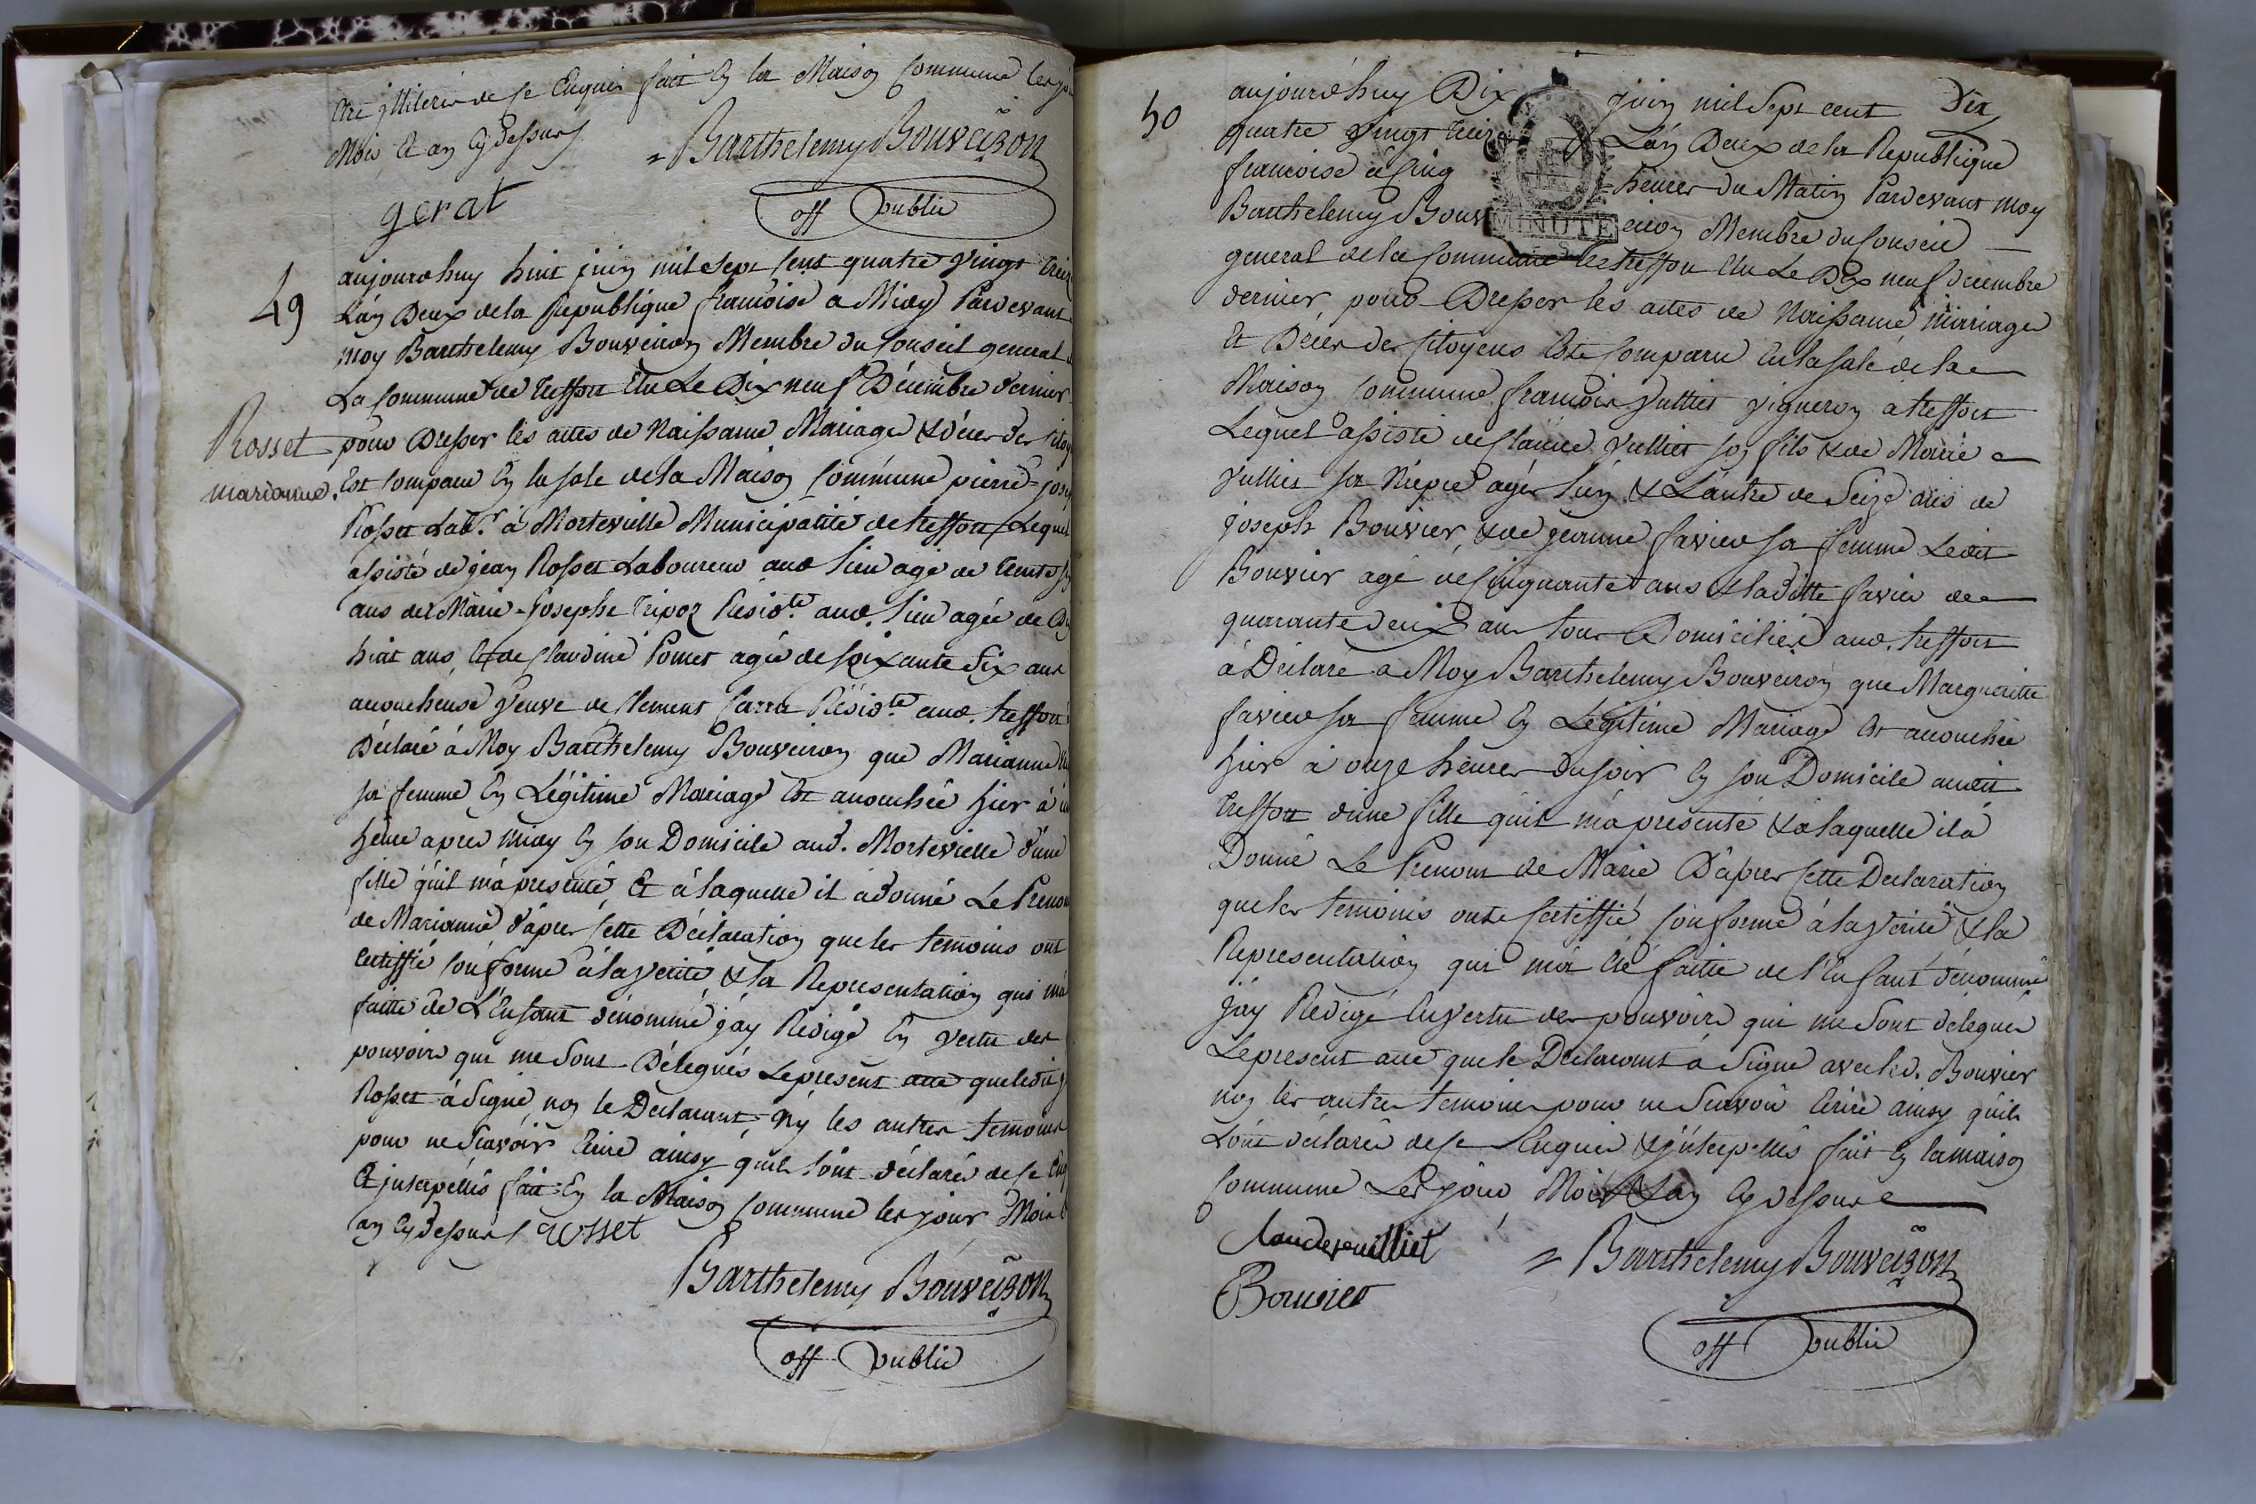 être illiterés de ce Enquis fait en la Maison Commune les jo
Mois et an Cydessus
Barthelemy Bouveiron
gerat
off public
49
aujourdhuy huit juin mil sept Cent quatre vingt treiz
L'an Deux de la Republique francoise a Midy Pardevant
moy Barthelemy Bouveiron Membre du Conseil general
La Commune de treffort Elu Le Dix neuf Décembre dernier
Rosset
pour Dresser les actes de Naissance Mariage & décés des Citoy
marianne.
Est Comparu En la sale de la Maison Commune pierre-jose
Rosset Labr. à Morteville Municipalité de treffort Lequel
assisté de jean Rosset Laboureur aud lieu agé de trente
ans de Marie-josephe tripoz Résidte. aud. lieu agée de Di
huit ans, et de Claudine Pomet agée de soixante Six ans
accoucheuse veuve de Clement Carra Résidte. aud. treffort
Déclaré à Moy Barthelemy Bouveiron que Marianne
sa femme En Légitime Mariage Est accouchée hier à
heure apres midy En son Domicile aud. Mortevielle d'une
fille quil m'a presenté, Et à laquelle il à donné Le Preno
de Marianne d'apres Cette Déclaration que les temoins ont
Certiffié Conforme à la verité & la Representation qui m'a
faitte de L'Enfant dénommé, j'ay Rédigé En vertu des
pouvoirs qui me sont Délegués Le present acte que ledit
Rosset à signé, non le Declarant Ny les autres temoins
pour ne scavoir Ecrire ainsy quils l'ont déclarés de ce Enq
Et interpellés fait En la Maison Commune les jour Mois
an Cydessus Rosset
Barthelemy Bouveiron
off public
50
aujourdhuy Dix juin mil sept cent Dix
quatre vingt treize L'an Deux de la Republique
francoise à Cinq heures du Matin Pardevant moy
Barthelemy Bouveiron Membre du Conseil
MINUTE
general de la Commune de treffort Elu Le Dix neuf decembre
dernier pour Dresser les actes de Naissance Mariages
Et Décés des Citoyens Est Comparu En la sale de la
Maison Commune francois Vulliet vigneron à treffort
Lequel assisté de Claude Vulliet son fils & de Marie
Vulliet sa Niepce agés L'un & L'autre de Seize ans de
joseph Bouvier, & de jeanne favier sa femme Ledit
Bouvier agé de Cinquante ans & la ditte favier de
quarante deux ans tous Domiciliés aud. treffort
à Déclaré a Moy Barthelemy Bouveiron que Marguerite
favier sa femme En Légitime Mariage Est accouchée
hier à onze heures du soir En son Domicile audit
treffort d'une fille quil m'a presenté & à laquelle il à
Donné Le Prenom de Marie D'apres Cette Declaration
que les temoins onts Certiffié Conforme à la verité & la
Representation qui m'a été faitte de l'Enfant dénommé
J'ay Rédigé En vertu des pouvoirs qui me sont délegués
Le present acte que le Declarant à Signé avec led. Bouvier
non les autres temoins pour ne scavoir Ecrire ainsy quils
L'ont déclarés de ce Enquis & interpellés fait En la maison
Commune Les jour, Mois & an Cydessus
Claude vuilliet
Barthelemy Bouveiron
Bouvier
off public